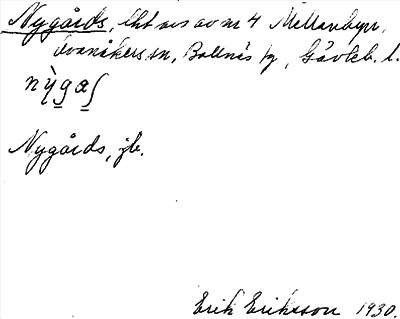 Nygårds, lht avs av nr 4 Mellanbyn,
Svanåkers sn, Bollnäs kg, Gävleb. l.
Nygårds, jb.
Erik Eriksson 1930.